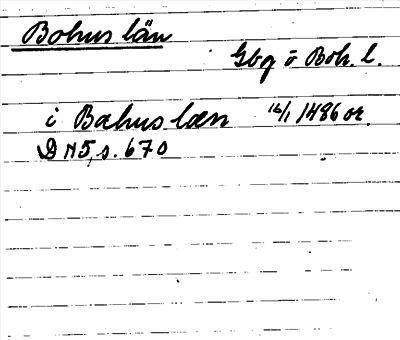 Bohus län
Gbg o Boh. l.
i Bahus læn 16/1 1486 or.
DN5, s. 670